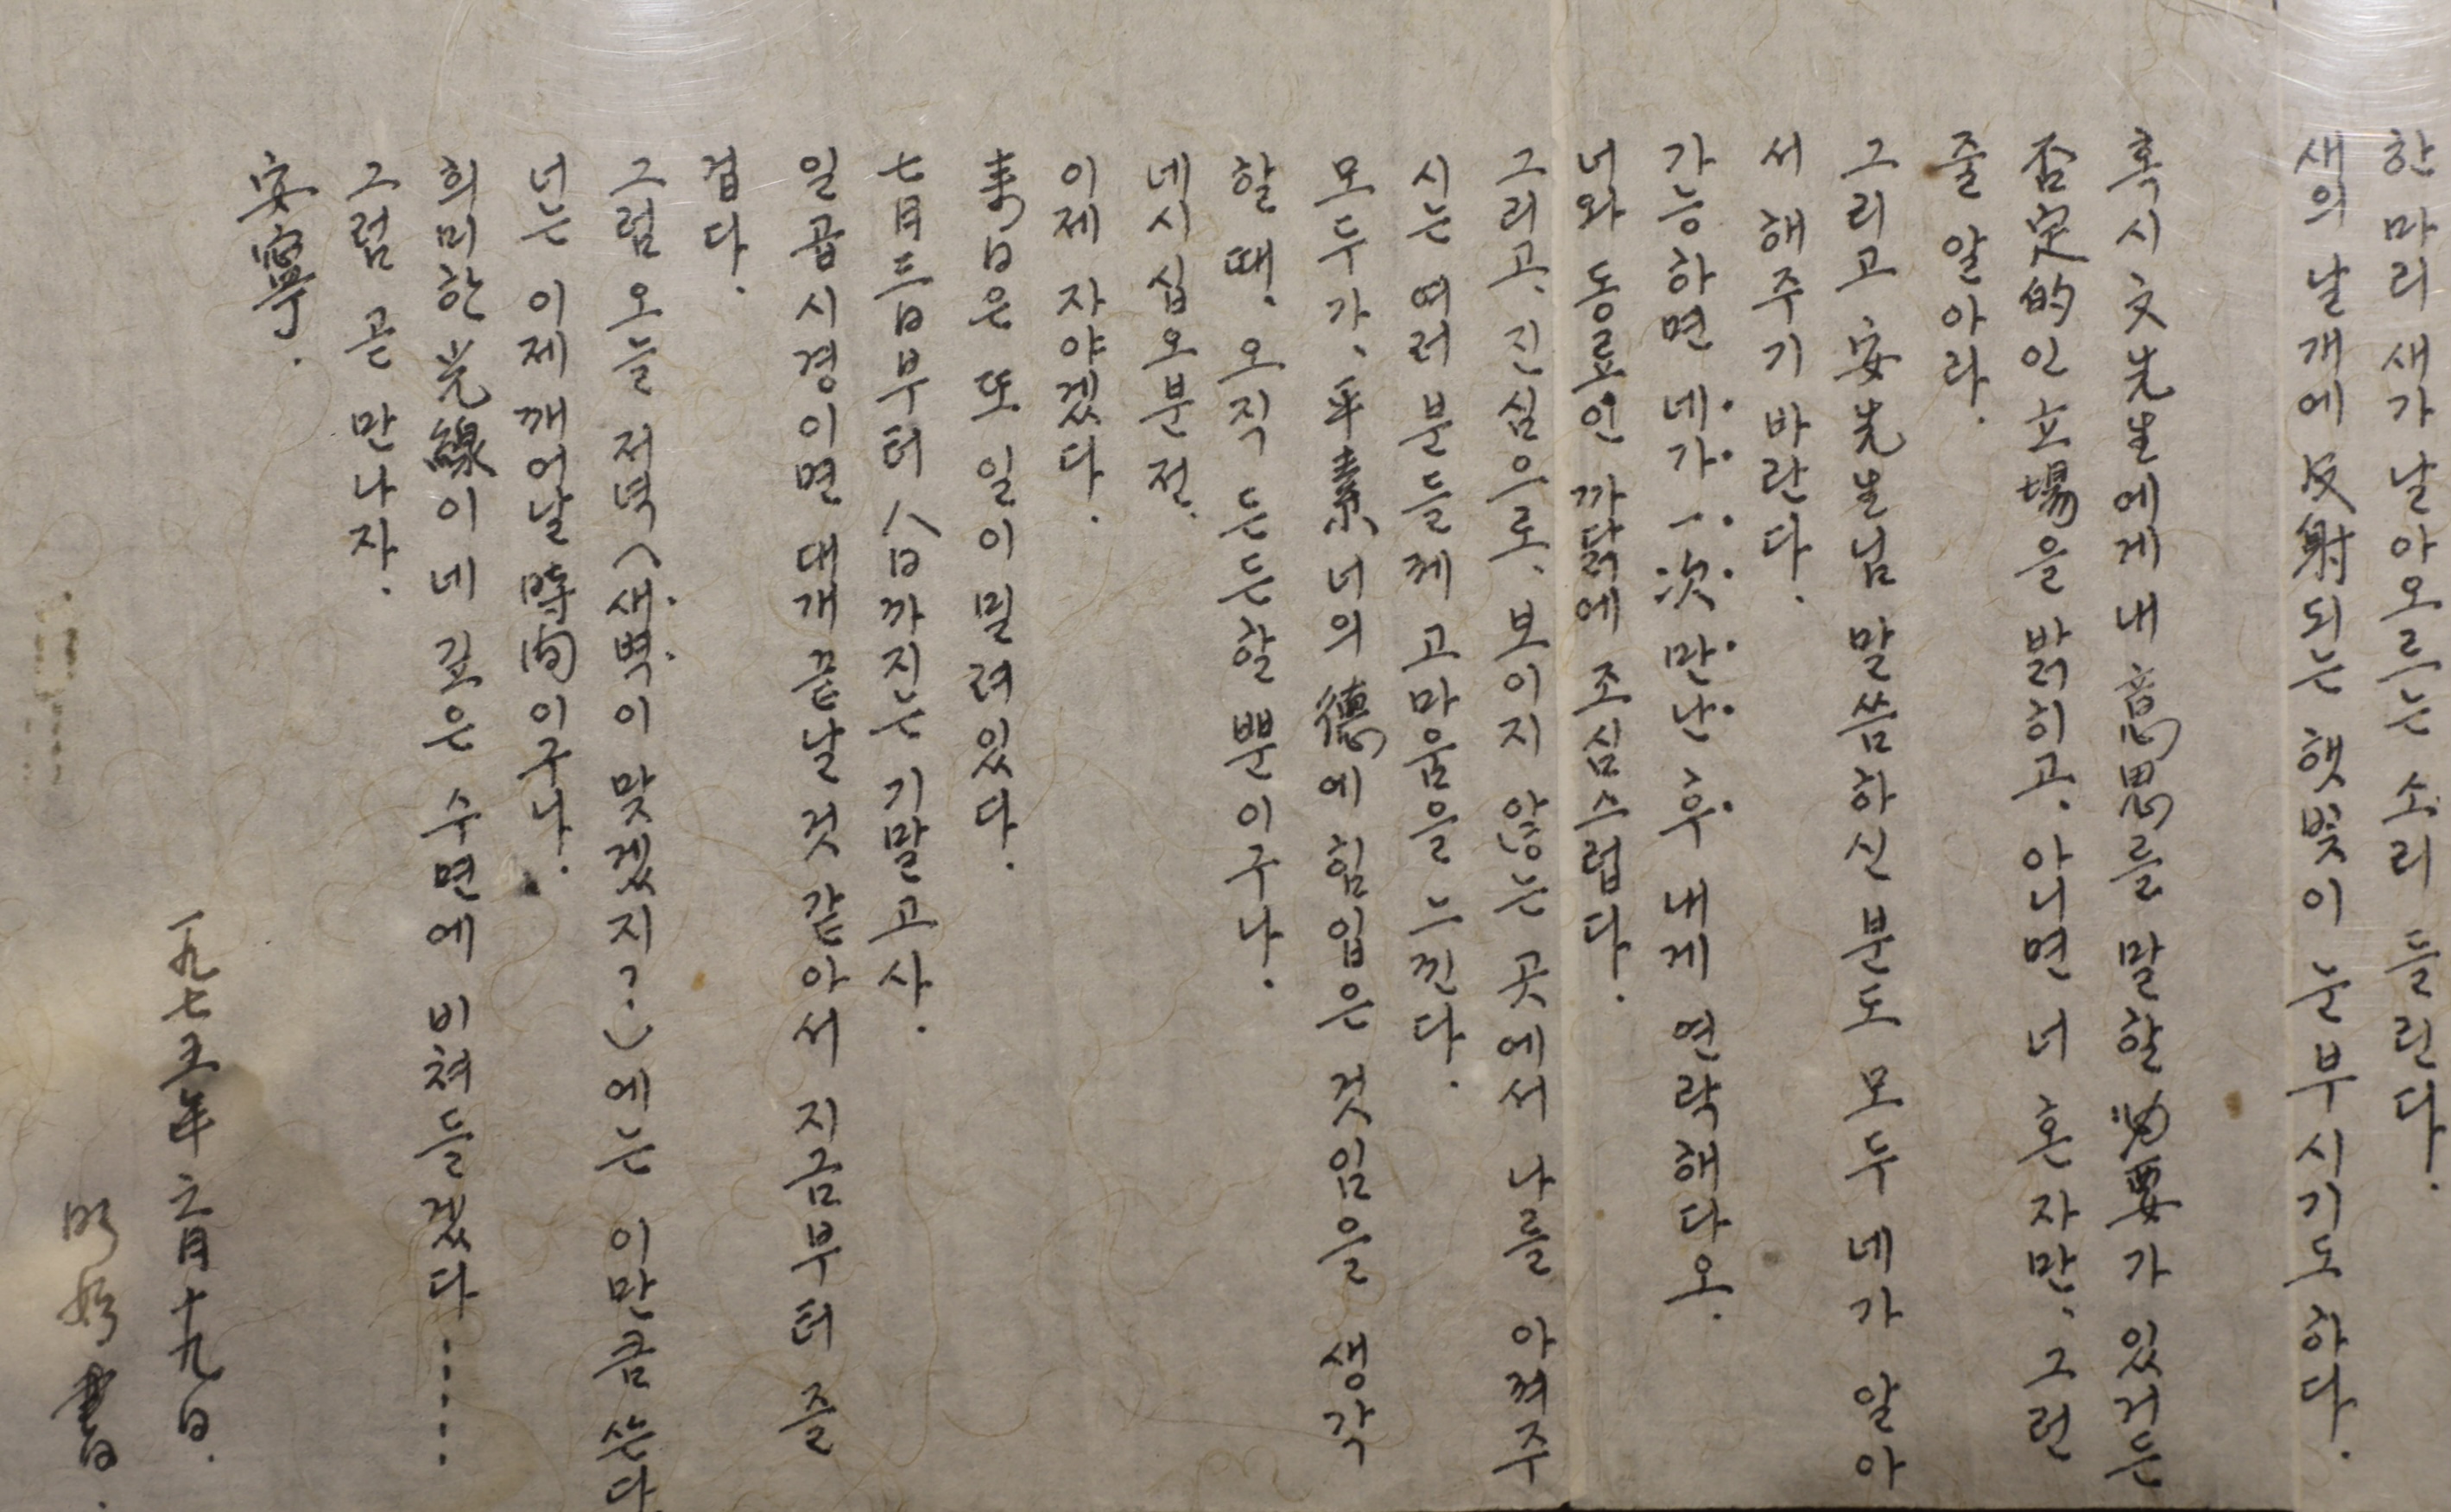 한 마리 새가 날아오르는 소리 들린다.
새의 날개에 反射되는 햇빛이 눈부시기도 하다.
혹시 文先生에게 내 意思를 말할 必要가 있거든
否定的인 立場을 밝히고. 아니면 너 혼자만, 그런
줄 알아라.
그리고 安先生님 말씀하신 분도 모두 네가 알아
서 해주기 바란다.
가능하면 네가 一次 만난 후 내게 연락해다오.
너와 동료인 까닭에 조심스럽다.
그리고, 진심으로, 보이지 않는 곳에서 나를 아껴주
시는 여러분들께 고마움을 느낀다.
모두가, 平素 너의 德에 힘입은 것임을 생각
할 때. 오직 든든할 뿐이구나.
네시 십오분 전.
이제 자야겠다.
來日은 또 일이 밀려있다.
七月三日부터 八日까지는 기말고사.
일곱시경이면 대개 끝날 것 같아서 지금부터 즐
겁다.
그럼 오늘 저녁(새벽이 맞겠지?)에는 이만큼 쓴다
너는 이제 깨어날 時間이구나.
희미한 光線이 네 깊은 수면에 비쳐들겠다……
그럼 곧 만나자.
安寧.
一九七五年 六月十九日.
明姬 書.